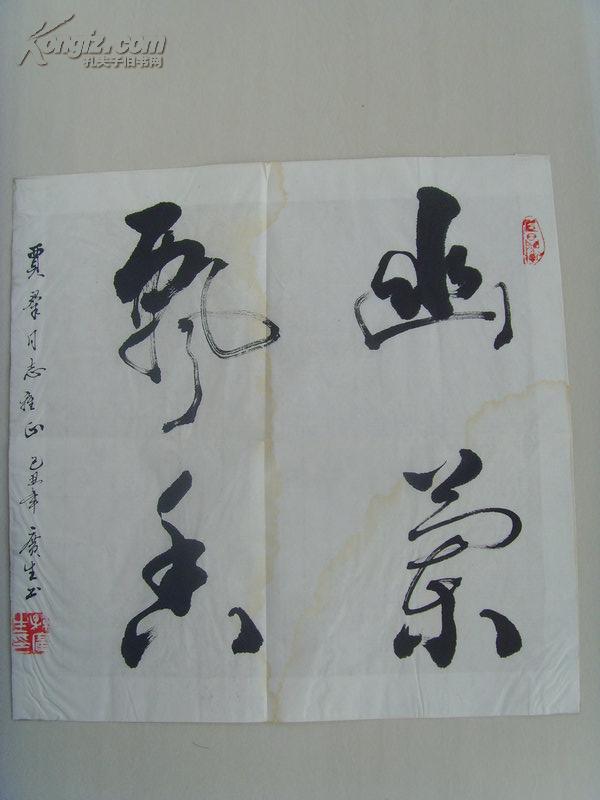 Kongfz.com
孔夫子旧书网
幽蘭
飄香
賈群同志雅正 己丑年 廣生书